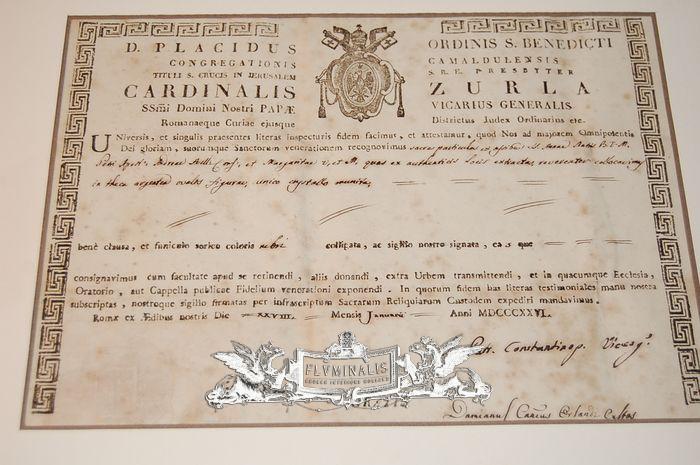 D. PLACIDUS ORDINIS S. BENEDICTI
CONGREGATIONIS CAMALDULENSIS
TITULI S. CRUCIS IN JERUSALEM S.R.E. PRESBYTER
CARDINALIS ZURLA
SSm̃i Domini Nostri PAPÆ VICARIUS GENERALIS
Romanaeque Curiae ejusque Districtus Judex Ordinarius etc.
Universis, et singulis praesentes literas inspecturis fidem facimus, et attestamur, quod Nos ad majorem Omnipotentis
Dei gloriam, suorumque Sanctorum venerationem recognovimus sacras particulas ex
et Margaritae V. et M. quas ex authenticis locis extractas reverenter collocavimus
in theca argentea ovalis figurae, unico crystallo munita,
benè clausa, et funiculo serico coloris rubri colligata, ac sigillo nostro signata, eas que
consignavimus cum facultate apud se retinendi, aliis donandi, extra Urbem transmittendi, et in quacumque Ecclesia,
Oratorio, aut Cappella publicae Fidelium venerationi exponendi. In quorum fidem has literas testimoniales manu nostra
subscriptas, nostroque sigillo firmatas per infrascriptum Sacrarum Reliquiarum Custodem expediri mandavimus.
Romæ ex Ædibus nostris Die XXVIII. Mensis Januarii Anni MDCCCXXVI.
Constantinop. Vicesg.
FLVMINALIS
Damianus Custos